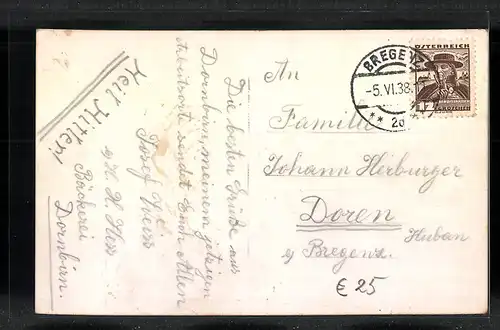 Die besten Grüße aus
Dornbirn, meinem jetzigen
Arbeitsort sendet Euch Allen
Josef
b/ H. K. Hess
Bäckerei
Dornbirn.
Heil Hitler!
BREGENZ
-5.VI.38.
** 2a
ÖSTERREICH
12
An
Familie
Johann Herburger
Doren
b/ Bregenz.
Huban
€ 25